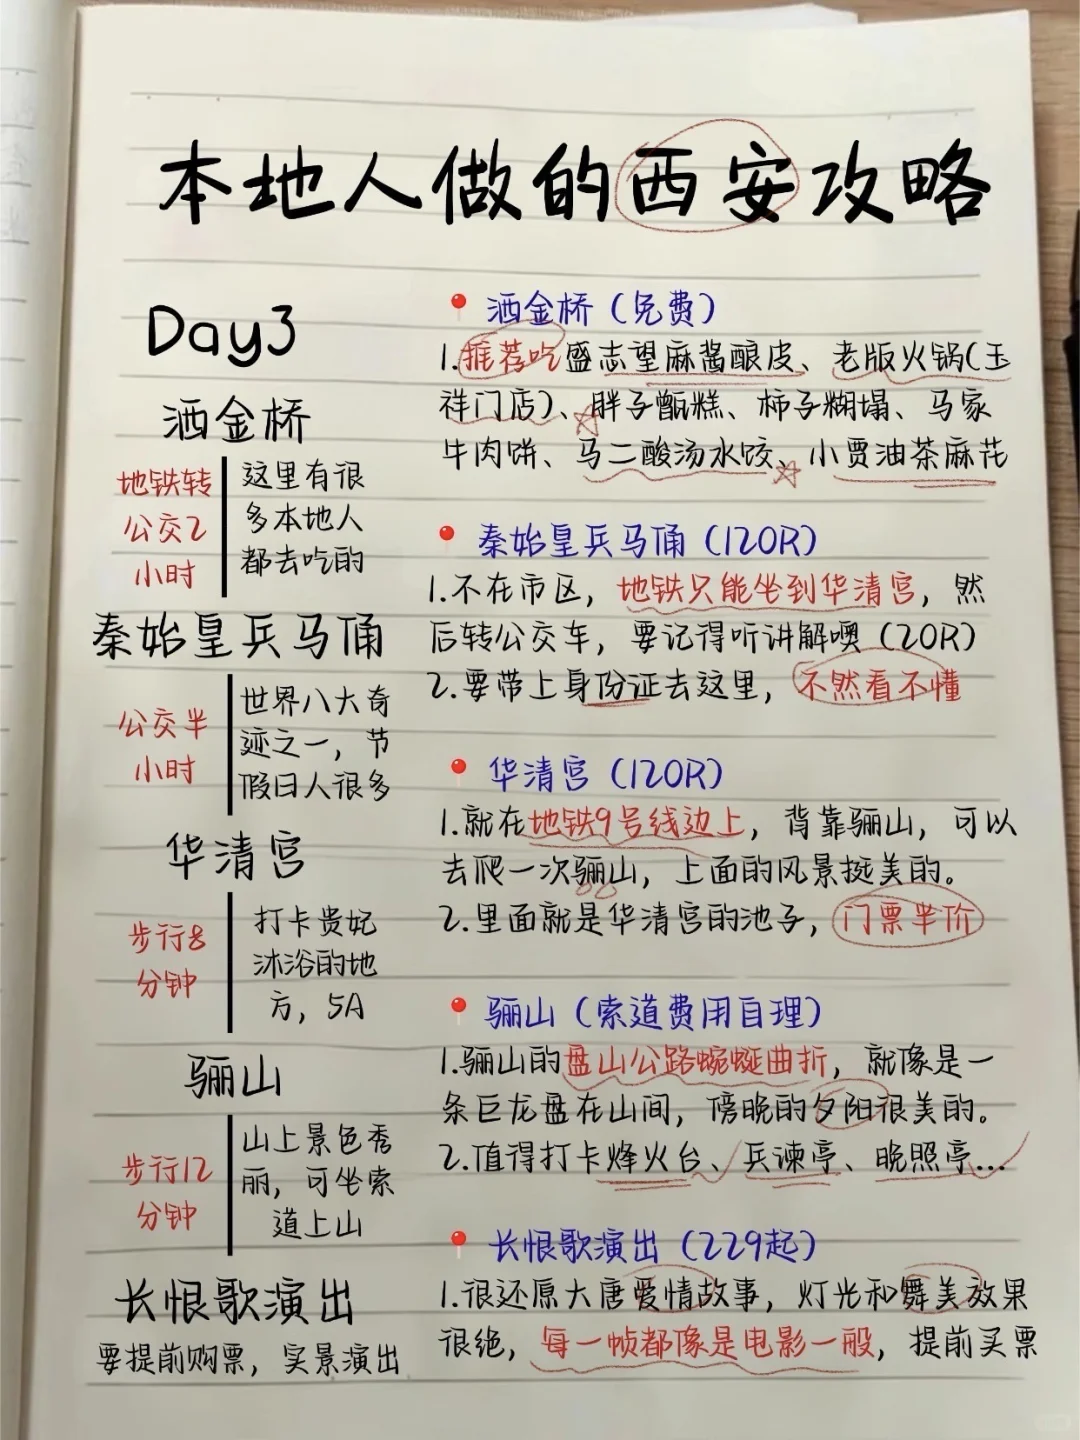 本地人做的西安攻略
Day3
洒金桥
地铁转
公交2
小时
这里有很
多本地人
都去吃的
秦始皇兵马俑
公交半
小时
世界八大奇
迹之一，节
假日人很多
华清宫
步行8
分钟
打卡贵妃
沐浴的地
方，5A
骊山
步行12
分钟
山上景色秀
丽，可坐索
道上山
长恨歌演出
要提前购票，实景演出
洒金桥（免费）
1.推荐吃盛志望麻酱酿皮、老版火锅(玉
祥门店)、胖子甑糕、柿子糊塌、马家
牛肉饼、马二酸汤水饺、小贾油茶麻花
秦始皇兵马俑（120R）
1.不在市区，地铁只能坐到华清宫，然
后转公交车，要记得听讲解噢（20R）
2.要带上身份证去这里，不然看不懂
华清宫（120R）
1.就在地铁9号线边上，背靠骊山，可以
去爬一次骊山，上面的风景挺美的。
2.里面就是华清宫的池子，门票半价
骊山（索道费用自理）
1.骊山的盘山公路蜿蜒曲折，就像是一
条巨龙盘在山间，傍晚的夕阳很美的。
2.值得打卡烽火台、兵谏亭、晚照亭...
长恨歌演出（229起）
1.很还原大唐爱情故事，灯光和舞美效果
很绝，每一帧都像是电影一般，提前买票